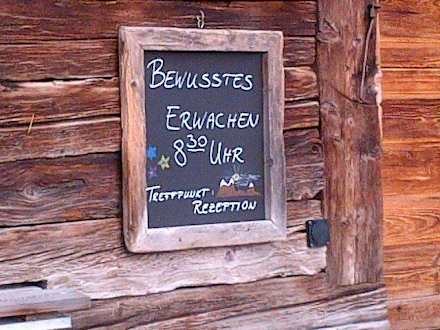 BEWUSSTES
ERWACHEN
8³⁰ UHR
TREFFPUNKT:
REZEPTION